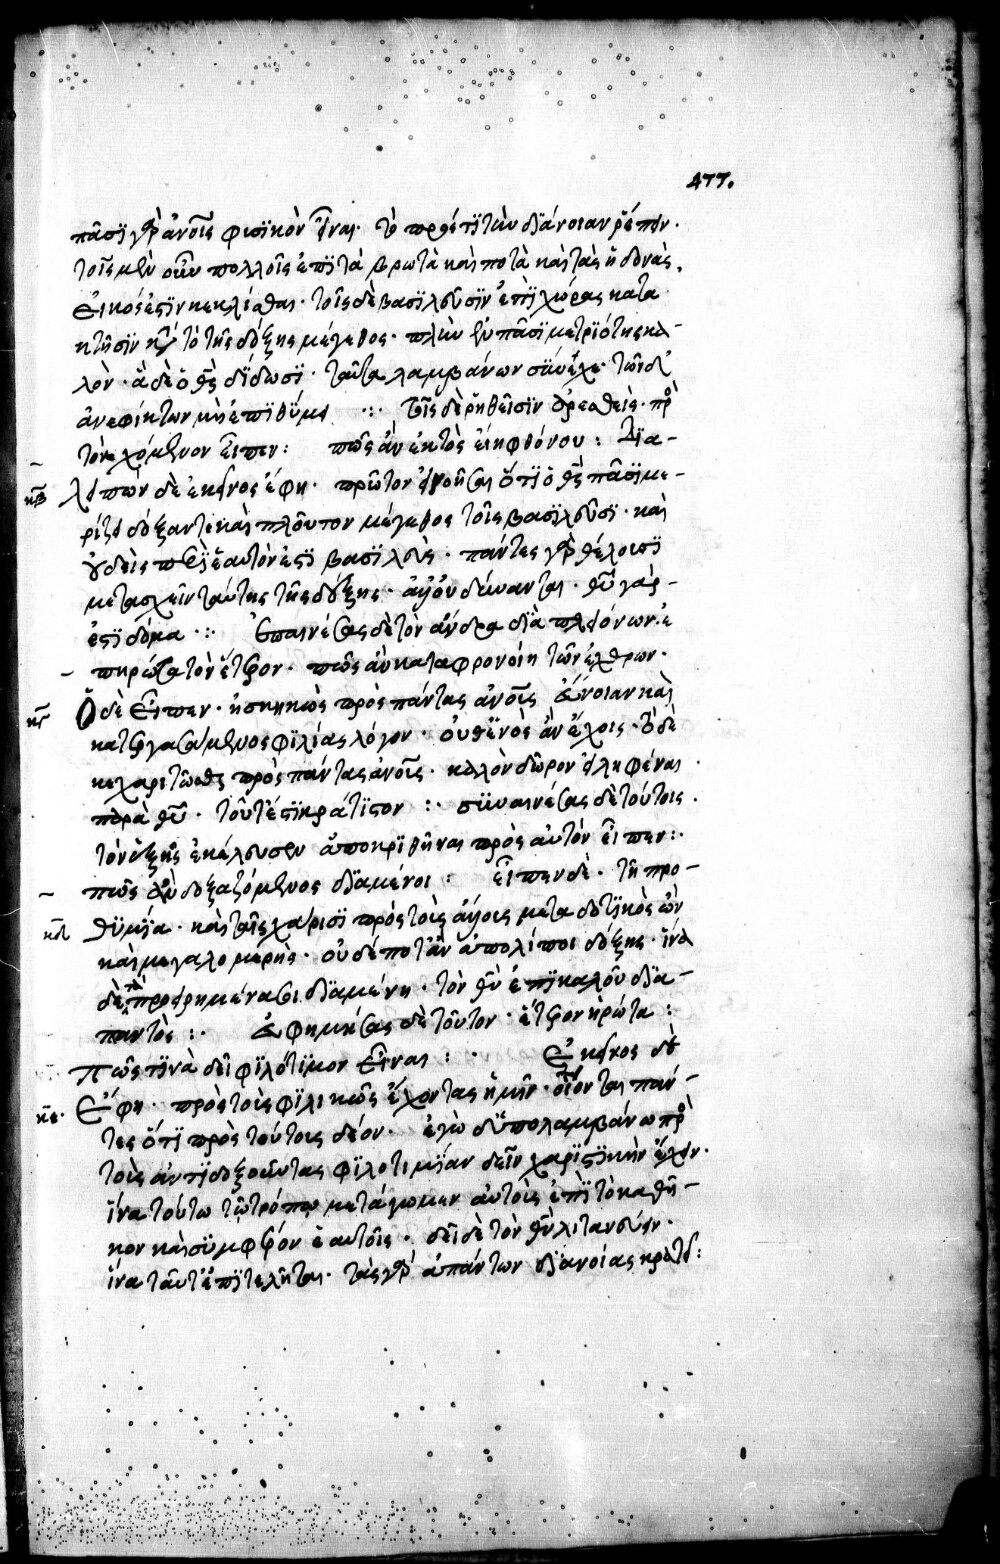 477.
πᾶσϊ γὰρ ἀν̅οις φυσϊκὸν εἶναι· τὸ πρός τϊ τὴν διάνοιαν ῥέπειν·
τοῖς μὲν οὖν πολλοῖς ἐπϊ τὰ βρωτὰ καὶ ποτὰ καὶ τὰς ἡδονὰς,
εἰκός ἐστϊν κεκλίσθαι· τοῖς δὲ βασϊλεῦσϊν ἐπὶ χώρας κατα
κτησϊν κατὰ τὸ τῆς δόξης μέγεθος· πλὴν ἐν πᾶσϊ μετρϊότης κα-
λὸν· ἃ δὲ ὁ θς̅ δίδωσϊ· ταῦτα λαμβάνων σύνεχε· τῶν δ'
ἀνεφίκτων μὴ ἐπϊθύμει ·:· τοῖς δὲ ῥηθεῖσϊν ἀρεσθεὶς· πρὸς
τὸν ἐχόμενον εἶπεν: πῶς ἂν ἐκτὸς εἴη φθόνου: Δϊα-
κβ λειπὼν δὲ ἐκεῖνος ἔφη· πρῶτον εἰ νοῆσαι ὅτϊ ὁ θς̅ πᾶσϊ με-
ρίζει δόξαν τε καὶ πλούτου μέγεθος τοῖς βασϊλεῦσϊ· καὶ
οὐδεὶς περὶ ἑαυτόν ἐστϊ βασϊλεὺς· πάντες γὰρ θέλουσϊ
μετασχεῖν ταύτης τῆς δόξης· ἀλλ' οὐ δύνανται· θυ̅ γάρ
ἐστϊ δόμα ·:· Ἐπαινέσας δὲ τὸν ἄνδρα διὰ πλειόνων ἐ
πηρώτα τὸν ἕτερον· πῶς ἂν καταφρονοίη τῶν ἐχθρῶν·
κγ Ὁ δὲ εἶπεν· ἠσκηκὼς πρὸς πάντας ἀν̅ους εὔνοιαν καὶ
κατεργασάμενος φϊλίας λόγον· οὐθενὸς ἂν ἔχοις· τὸ δὲ
κεχαριτῶσθαι πρὸς πάντας ἀν̅ους· καλὸν δῶρον εἰληφέναι
παρὰ θυ̅· τοῦτ' ἐστϊ κράτϊστον :· συναινέσας δὲ τούτοις
τὸν ἑξῆς ἐκέλευσεν ἀποκρϊθῆναι πρὸς αὐτὸν εἶπεν:·
πῶς ἂν δοξαζόμενος διαμένοι: Εἶπεν δὲ· τῆ προ-
κδ θϋμία· καὶ ταῖς χάρισϊ πρὸς τοὺς ἄλλους μεταδοτϊκὸς ὢν
καὶ μεγαλομερὴς· οὐδέποτ' ἂν ἀπολίποι δόξης· ἵνα
δὲ τὰ προειρημένα σοι διαμένη· τὸν θν̅ ἐπϊκαλοῦ διὰ-
παντός :· Εὐφημήσας δὲ τοῦτον· ἕτερον ἠρώτα:
πῶς τϊνὰ δεῖ φϊλότϊμον εἶναι:· Ἐκεῖνος δὲ
κε· Ἔφη· πρὸς τοὺς φϊλικῶς ἔχοντας ἡμῖν· οἴονται πάν-
τες ὅτϊ πρὸς τούτους δέον· ἐγὼ δ' ὑπολαμβάνω πρὸς
τοὺς ἀντϊδοξοῦντας φϊλοτιμίαν δεῖν χαρϊστϊκὴν ἔχειν·
ἵνα τούτω τῶ τρόπω μετάγωμεν αὐτοὺς ἐπϊ τὸ καθῆ-
κον καὶ συμφέρον ἑαυτοῖς· δεῖ δὲ τὸν θν̅ λιτανεύειν·
ἵνα ταῦτ' ἐπϊτελῆται· τὰς γὰρ ἁπάντων διανοίας κρατεῖ: